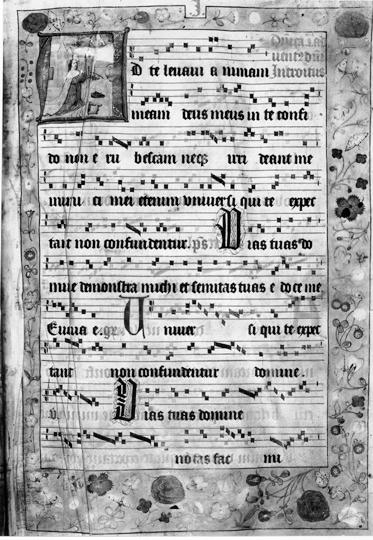 D te levavi a nimam
Introitus
meam deus meus in te confi
do non e ru bescam neqz irri deant me
inimi ci mei etenim universi qui te expec
tant non confundentur. ps Vias tuas do
mine demonstra michi et semitas tuas e do ce me
Euuia e. gr. U niver si qui te expec
tant non confundentur domine.
v. Vias tuas domine
no tas fac mi